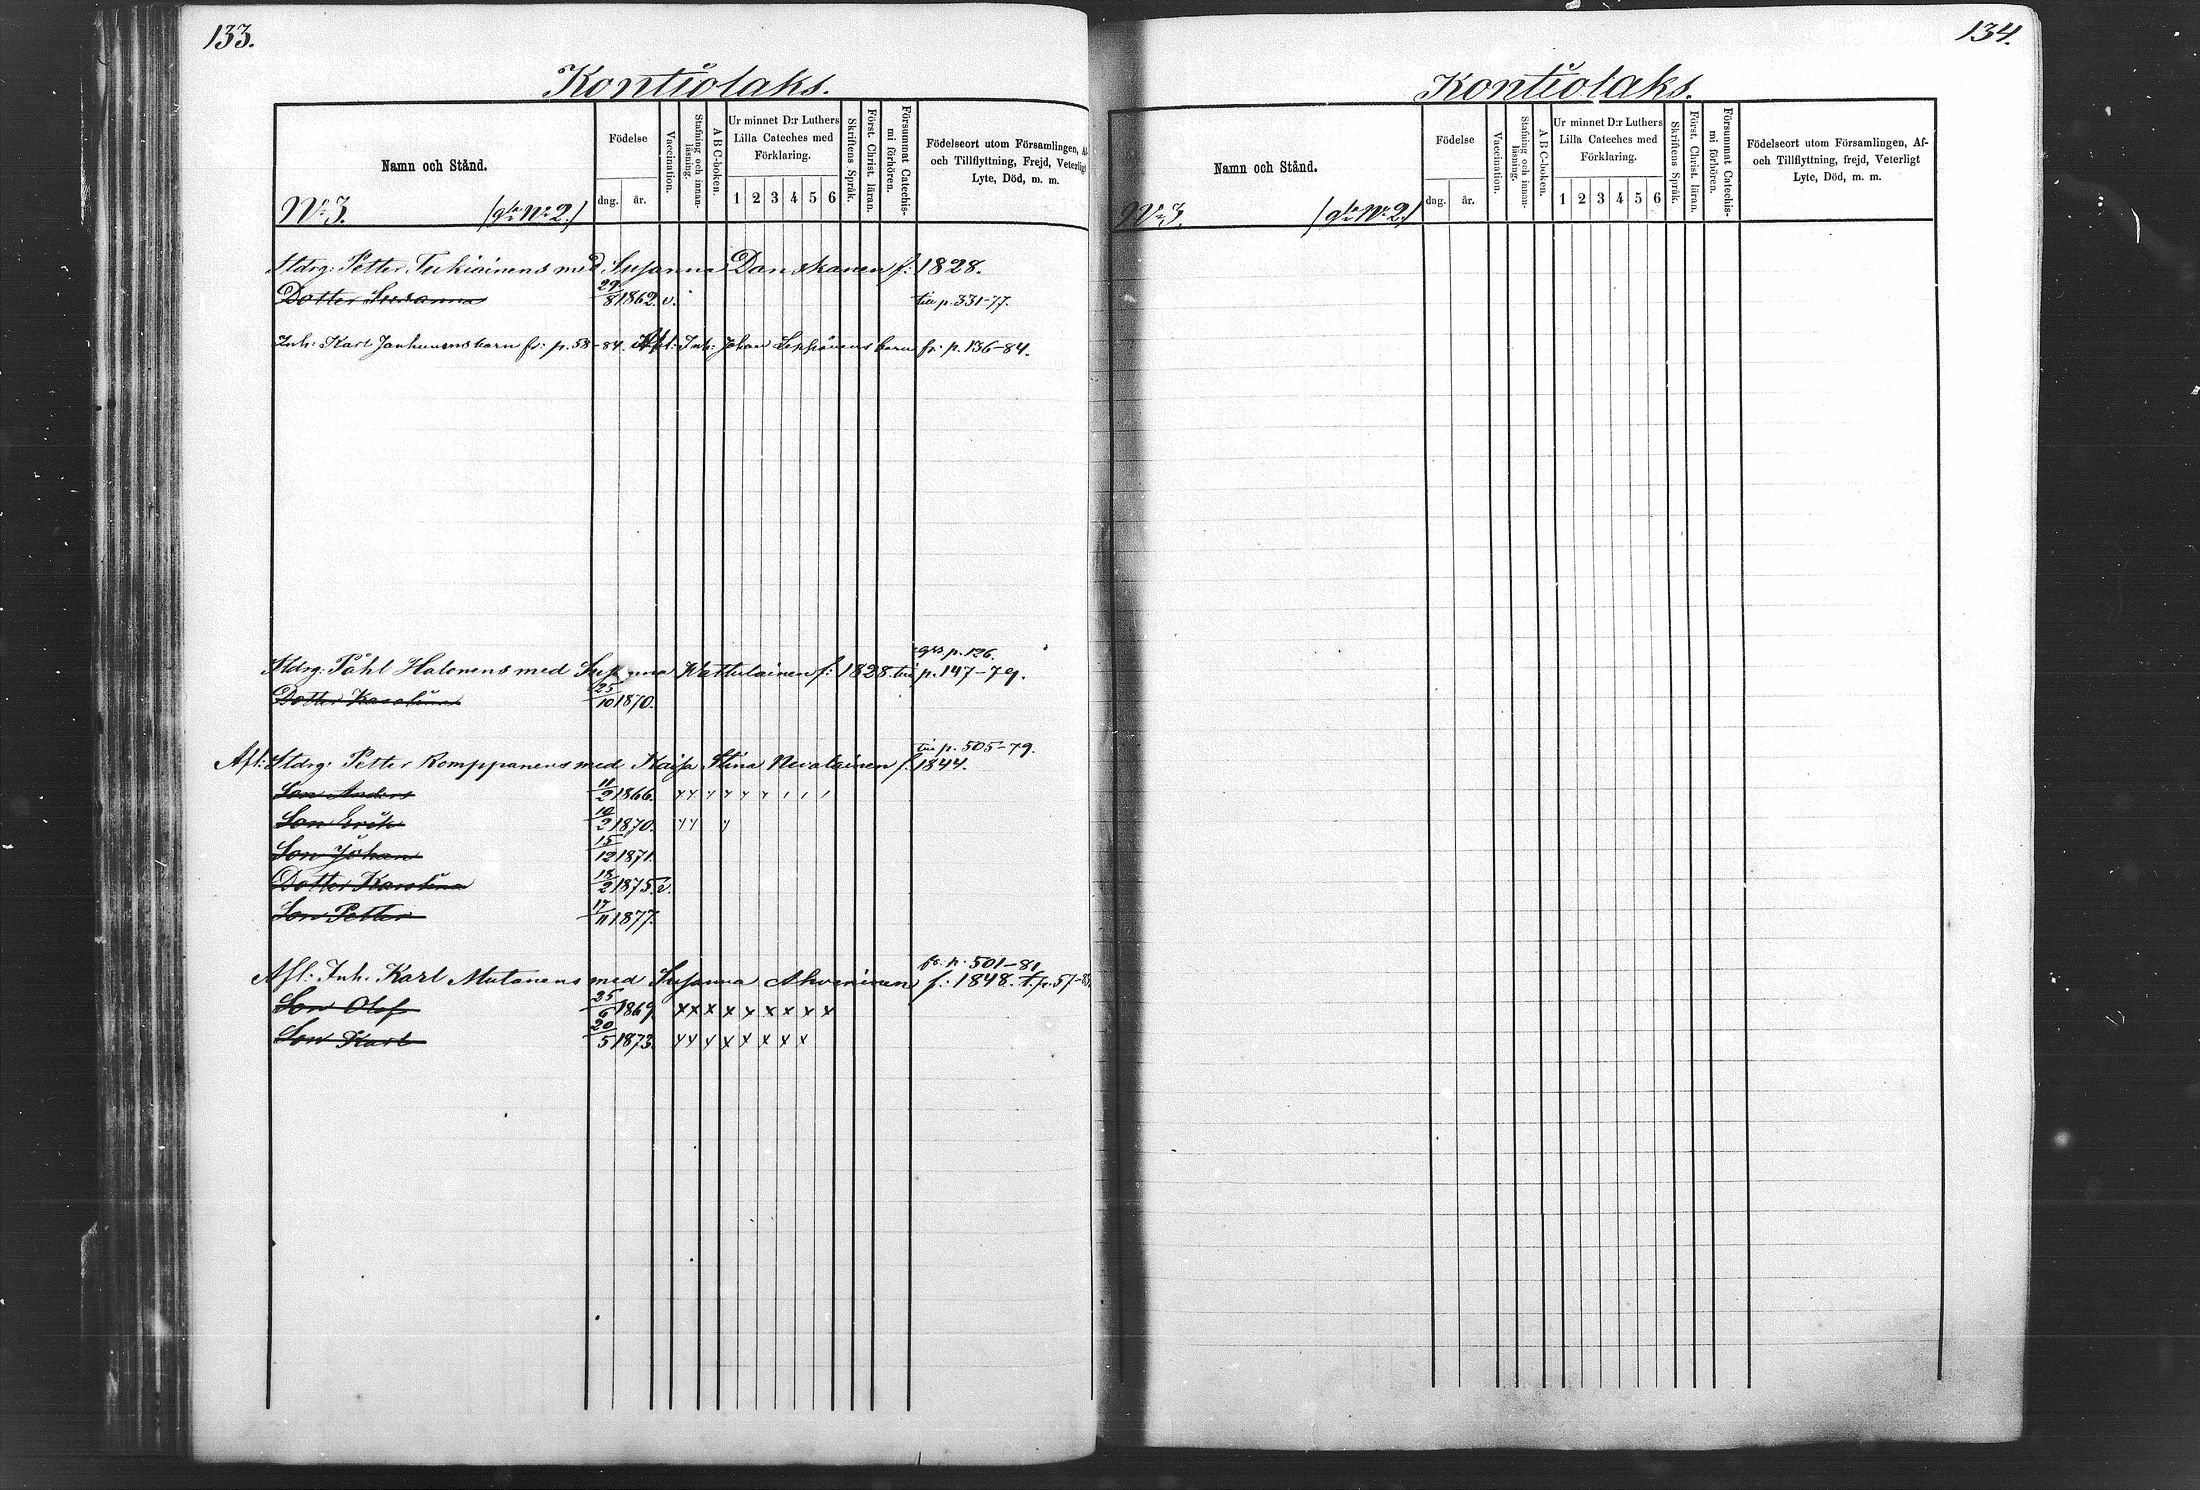 133.
Kontiolaks.
Namn och Stånd.
Födelse
dag. år.
Vaccination.
Stafning och innanläsning.
A B C-boken.
Ur minnet D:r Luthers Lilla Cateches med Förklaring.
1 2 3 4 5 6
Skriftens Språk.
Först. Christ. läran.
Försummat Catechismi förhören.
Födelseort utom Församlingen, Af-
och Tillflyttning, Frejd, Veterligt
Lyte, Död, m. m.
No 3. /gla No 2./
Stdrg: Petter Tukiainens med Susanna Danskanen f: 1828.
Dotter Susanna 29/8 1862. v. till p. 331-77.
Inh: Karl Janhunens barn fr: p. 58-84. Afl: Inh: Johan Seppänens barn fr: p. 136-84.
grs p. 126.
Stdrg: Påhl Halonens med Susanna Wattulainen f: 1828. till p. 147-79.
Dotter Karolina 25/10 1870.
till p. 505-79.
Afl: Stdrg: Petter Romppanens med Kaisa Stina Nevalainen f. 1844.
Son Anders 11/2 1866.
Son Erik 19/2 1870.
Son Johan 15/12 1871.
Dotter Karolina 18/2 1875. v.
Son Petter 17/11 1877.
fr. p. 501-81
Afl: Inh. Karl Mutanens med Susanna Ahveninen f: 1848. t. p. 57-
Son Olof 25/6 1869. x x x x x x x x x
Son Karl 20/5 1873.
134.
Kontiolaks.
Namn och Stånd.
Födelse
dag. år.
Vaccination.
Stafning och innanläsning.
A B C-boken.
Ur minnet D:r Luthers Lilla Cateches med Förklaring.
1 2 3 4 5 6
Skriftens Språk.
Först. Christ. läran.
Försummat Catechismi förhören.
Födelseort utom Församlingen, Af-
och Tillflyttning, frejd, Veterligt
Lyte, Död, m. m.
No 3. /gla No 2./